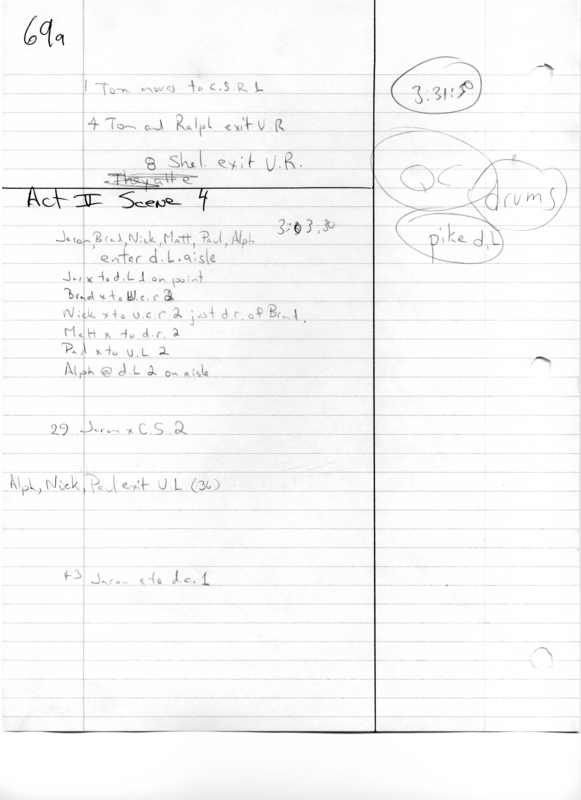 69a
1 Tom moves to C.S.R 1
3:31:30
4 Tom and Ralph exit U.R
8 Shel. exit U.R.
QC
drums
pike d.L
Act II Scene 4
3:03.30
Jason, Brad, Nick, Matt, Paul, Alph
enter d.L. aisle
Jas x to d.L 1 on point
Brad x to U.c.r 2
Nick x to u.c.r 2 just d.r. of Brad.
Matt x to d.r. 2
Paul x to U.L 2
Alph @ d.L 2 on aisle
29 Jason x C.S. 2
Alph, Nick, Paul exit U.L (36)
43 Jason x to d.c. 1